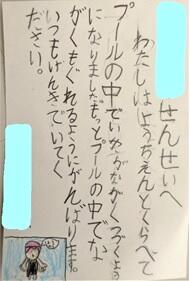 せんせいへ
わたしはようちえんとくらべて
プールの中でいきがながくつづくよう
になりました。もっとプールの中でな
がくもぐれるようにがんばります。
いつもげんきでいてく
ださい。